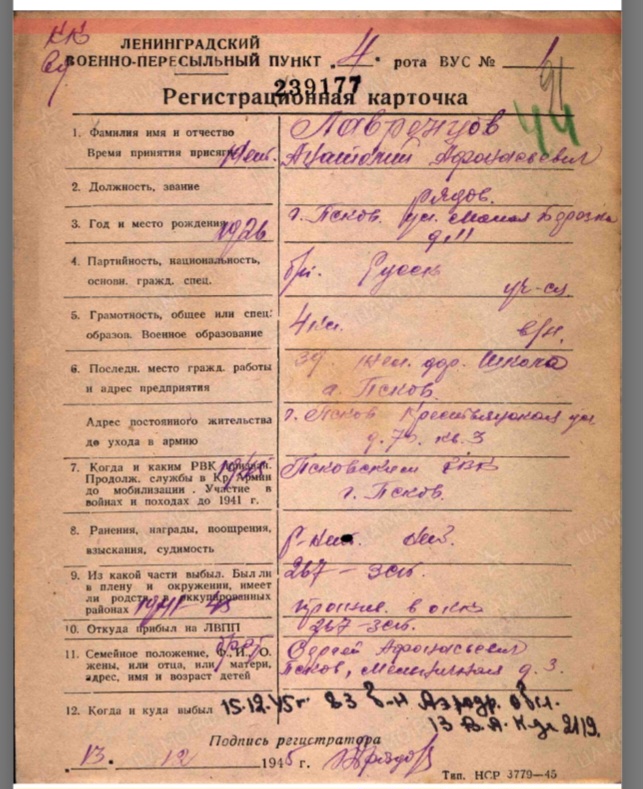 КК
ЛЕНИНГРАДСКИЙ
ВОЕННО-ПЕРЕСЫЛЬНЫЙ ПУНКТ „4“ рота ВУС № 1
239177
91
44
Регистрационная карточка
1. Фамилия имя и отчество Лавренцов
Время принятия присяги Афонасьевич
2. Должность, звание рядов.
3. Год и место рождения 1926 г. Псков. ул. Малая
д. 11
4. Партийность, национальность, б/п. Русск
основн. гражд. спец. уч-ся
5. Грамотность, общее или спец. 4 кл.
образов. Военное образование
6. Последн. место гражд. работы школа
и адрес предприятия г. Псков.
Адрес постоянного жительства г. Псков
до ухода в армию д. 73. кв. 3
7. Когда и каким РВК призван. 1945 Псковским РВК
Продолж. службы в Кр. Армии г. Псков.
до мобилизации. Участие в
войнах и походах до 1941 г.
8. Ранения, награды, поощрения,
взыскания, судимость
9. Из какой части выбыл. Был ли 267 – зсп.
в плену и окружении, имеет
ли родств. в оккупированных
районах в окк
10. Откуда прибыл на ЛВПП 267-зсп.
11. Семейное положение, Ф. И. О. брат Сергей Афонасьевич
жены, или отца, или матери, Псков, д. 3.
адрес, имя и возраст детей
12. Когда и куда выбыл 15.12.45г 83 б-н Аэродр. обсл.
13 В.А. К-да 2119.
Подпись регистратора
„13“ 12 1945 г.
Тип. НСР 3779—45